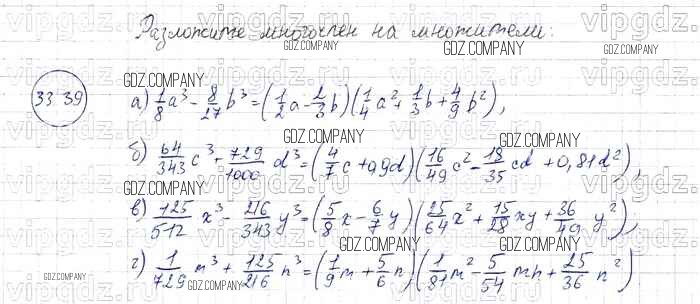 Разложите многочлен на множители:
33.39
а) 1/8 a³ - 8/27 b³ = (1/2 a - 2/3 b)(1/4 a² + 1/3 b + 4/9 b²),
б) 64/343 c³ + 729/1000 d³ = (4/7 c + 0,9d)(16/49 c² - 18/35 cd + 0,81d²),
в) 125/512 x³ - 216/343 y³ = (5/8 x - 6/7 y)(25/64 x² + 15/28 xy + 36/49 y²);
г) 1/729 m³ + 125/216 n³ = (1/9 m + 5/6 n)(1/81 m² - 5/54 mn + 25/36 n²)